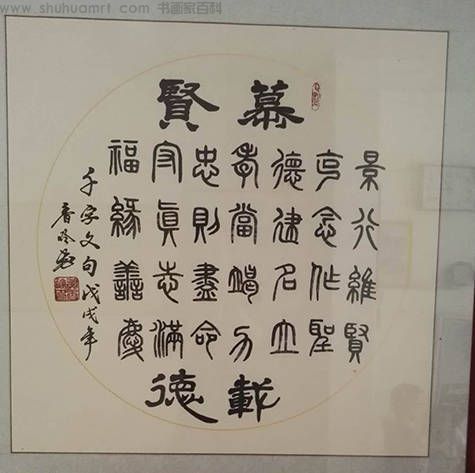 www.shuhuamrt.com 书画家百科
慕賢
景行維賢
克念作聖
德建名立
孝當竭力
忠則盡命
守眞志滿
福緣善慶
載德
千字文句戊戌年